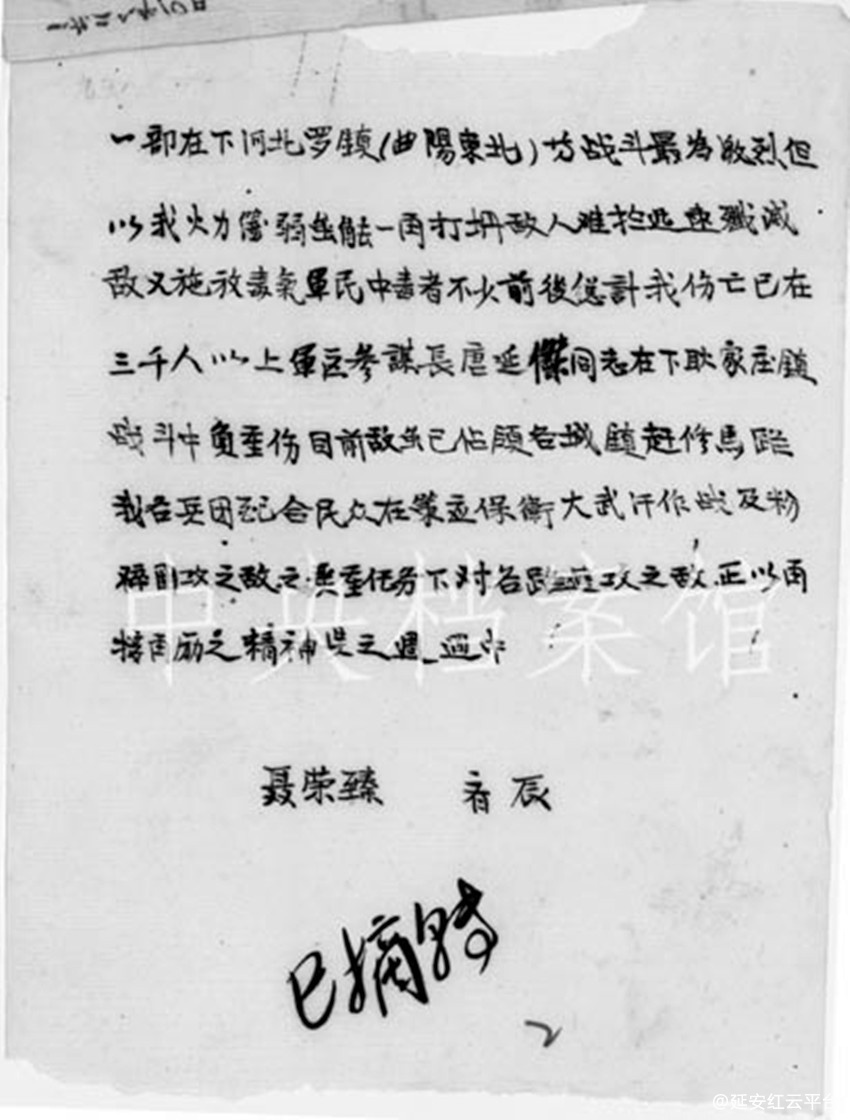 一部在下河北罗鎮(曲陽東北)方战斗最為激烈但
以我火力薄弱虽能一再打坍敌人难於迅速殲滅
敌又施放毒氣軍民中毒者不少前後总計我伤亡已在
三千人以上軍区参謀長唐延傑同志在下耿家庄鎮
战斗中負重伤目前敌虽已佔領各城鎮赶修馬路
我各兵团配合民众在策应保衛大武汗作战及粉
碎進攻之敌之重任务下对各路進攻之敌正以再
接再励之精神与之週
聂荣臻
辰
已摘
2
中央档案馆
@延安红云平台